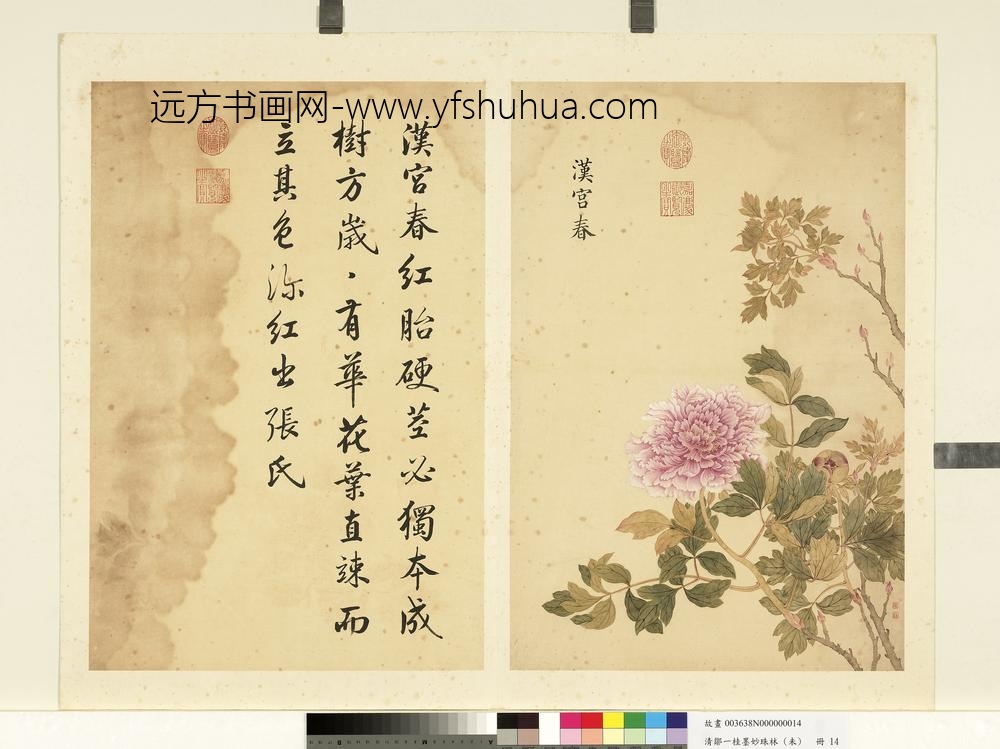 远方书画网-www.yfshuhua.com
漢宮春
漢宮春紅胎硬莖必獨本成
樹方歲、有華花葉直竦而
立其色深紅出張氏
故畫 003638N000000014
清鄒一桂墨妙珠林（未） 冊 14